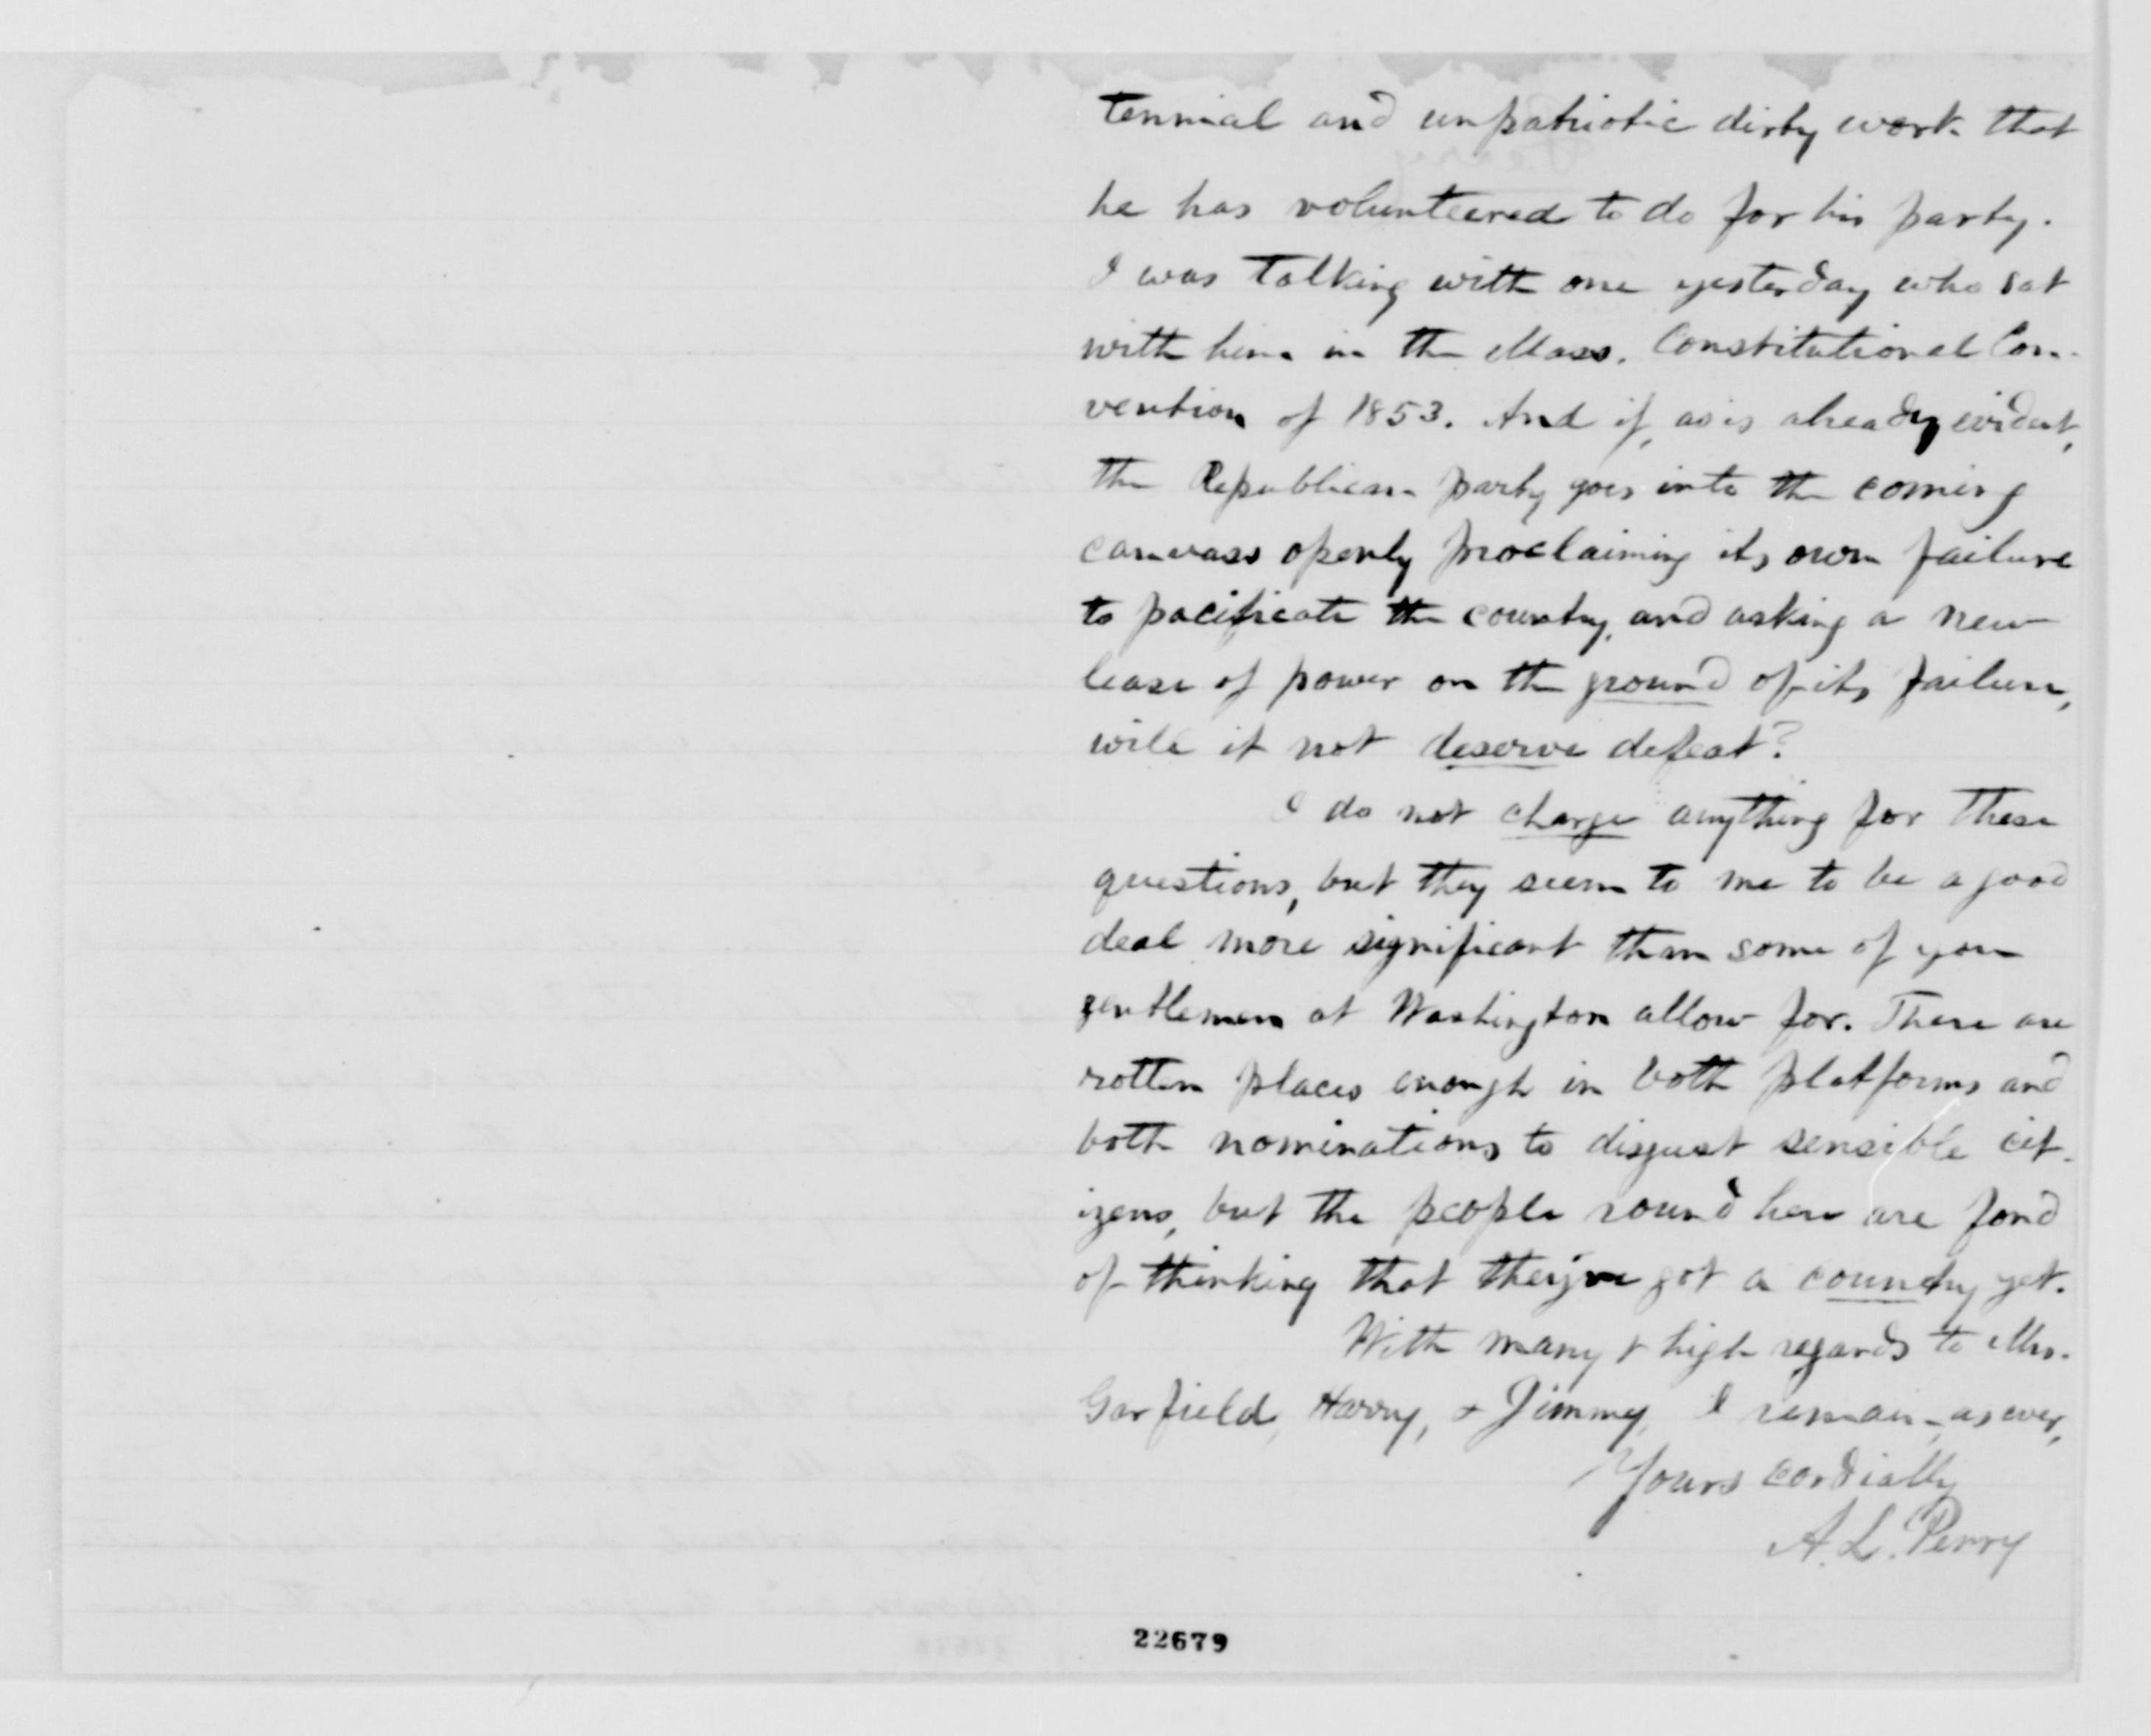 tennial and unpatriotic dirty work that
he has volunteered to do for his party.
I was talking with one yesterday who sat
with him in the Mass. Constitutional Con-
vention of 1853. And if, as is already evident,
the Republican party goes into the coming
canvass openly proclaiming its own failure
to pacificate the country, and asking a new
lease of power on the ground of its failure,
will it not deserve defeat?
I do not charge anything for these
questions, but they seem to me to be a good
deal more significant than some of you
gentlemen at Washington allow for. There are
rotten places enough in both platforms and
both nominations to disgust sensible cit-
izens, but the people round here are fond
of thinking that they've got a country yet.
With many & high regards to Mrs.
Garfield, Harry, & Jimmy, I remain, as ever,
Yours cordially
A. L. Perry
22679